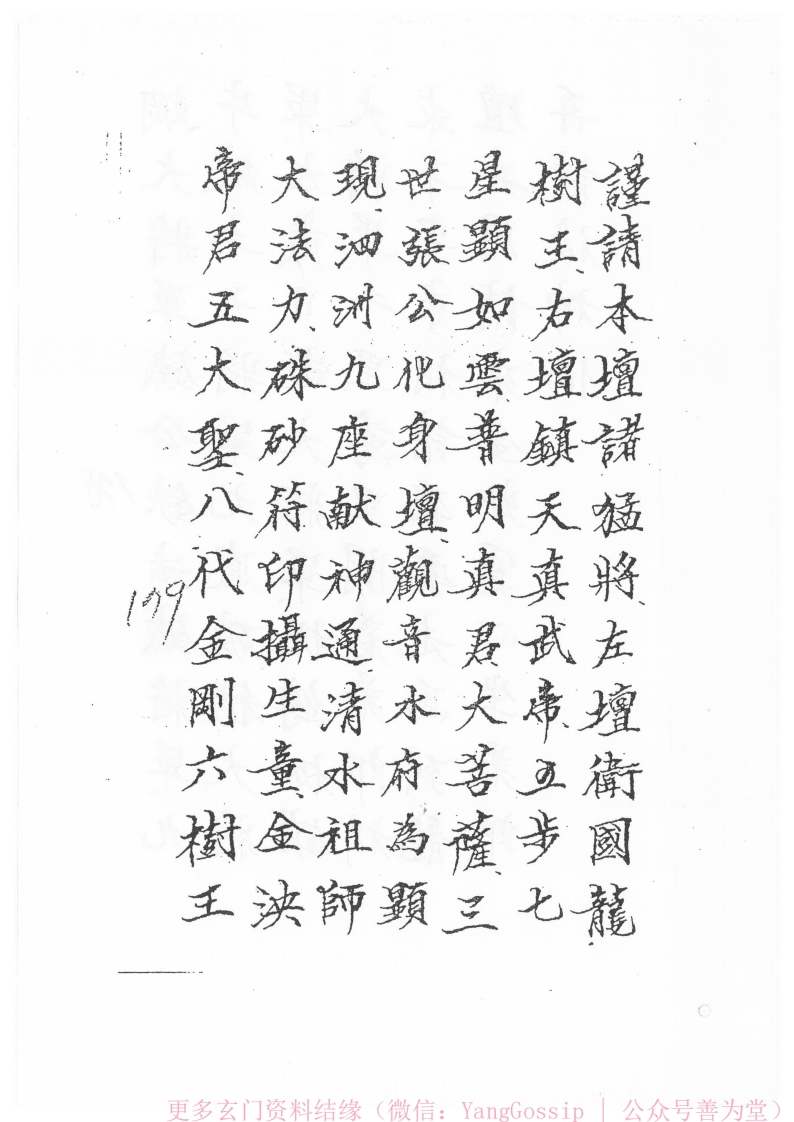 謹請本壇諸猛將左壇衛國龍
樹王右壇鎮天真武帝五步七
星顯如雲普明真君大菩薩三
世張公化身壇觀音水府為顯
現泗洲九座献神通清水祖師
大法力硃砂符印攝生童金泱
帝君五大聖八代金剛六樹王
199
更多玄门资料结缘（微信：YangGossip | 公众号善为堂）